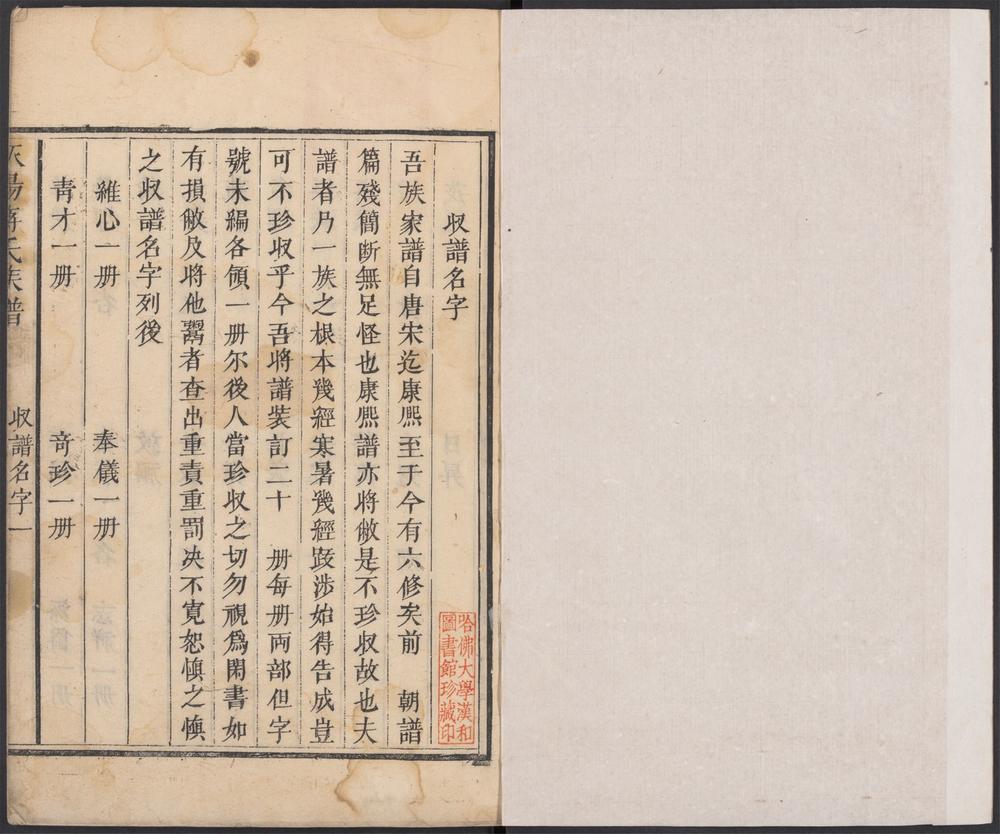 収譜名字
吾族家譜自唐宋迄康熈至于今有六修矣前　朝譜
篇殘簡断無足怪也康熈譜亦將敝是不珍収故也夫
譜者乃一族之根本幾經寒暑幾經跋涉始得告成豈
可不珍収乎今吾將譜装訂二十　册每册両部但字
號未編各領一册尔後人當珍収之切勿視爲閑書如
有損敝及將他鬻者查出重責重罰决不寬恕慎之慎
之収譜名字列後
維心一册　奉儀一册
靑才一册　奇珍一册
氏族譜　収譜名字一
哈佛大學漢和
圖書館珍藏印